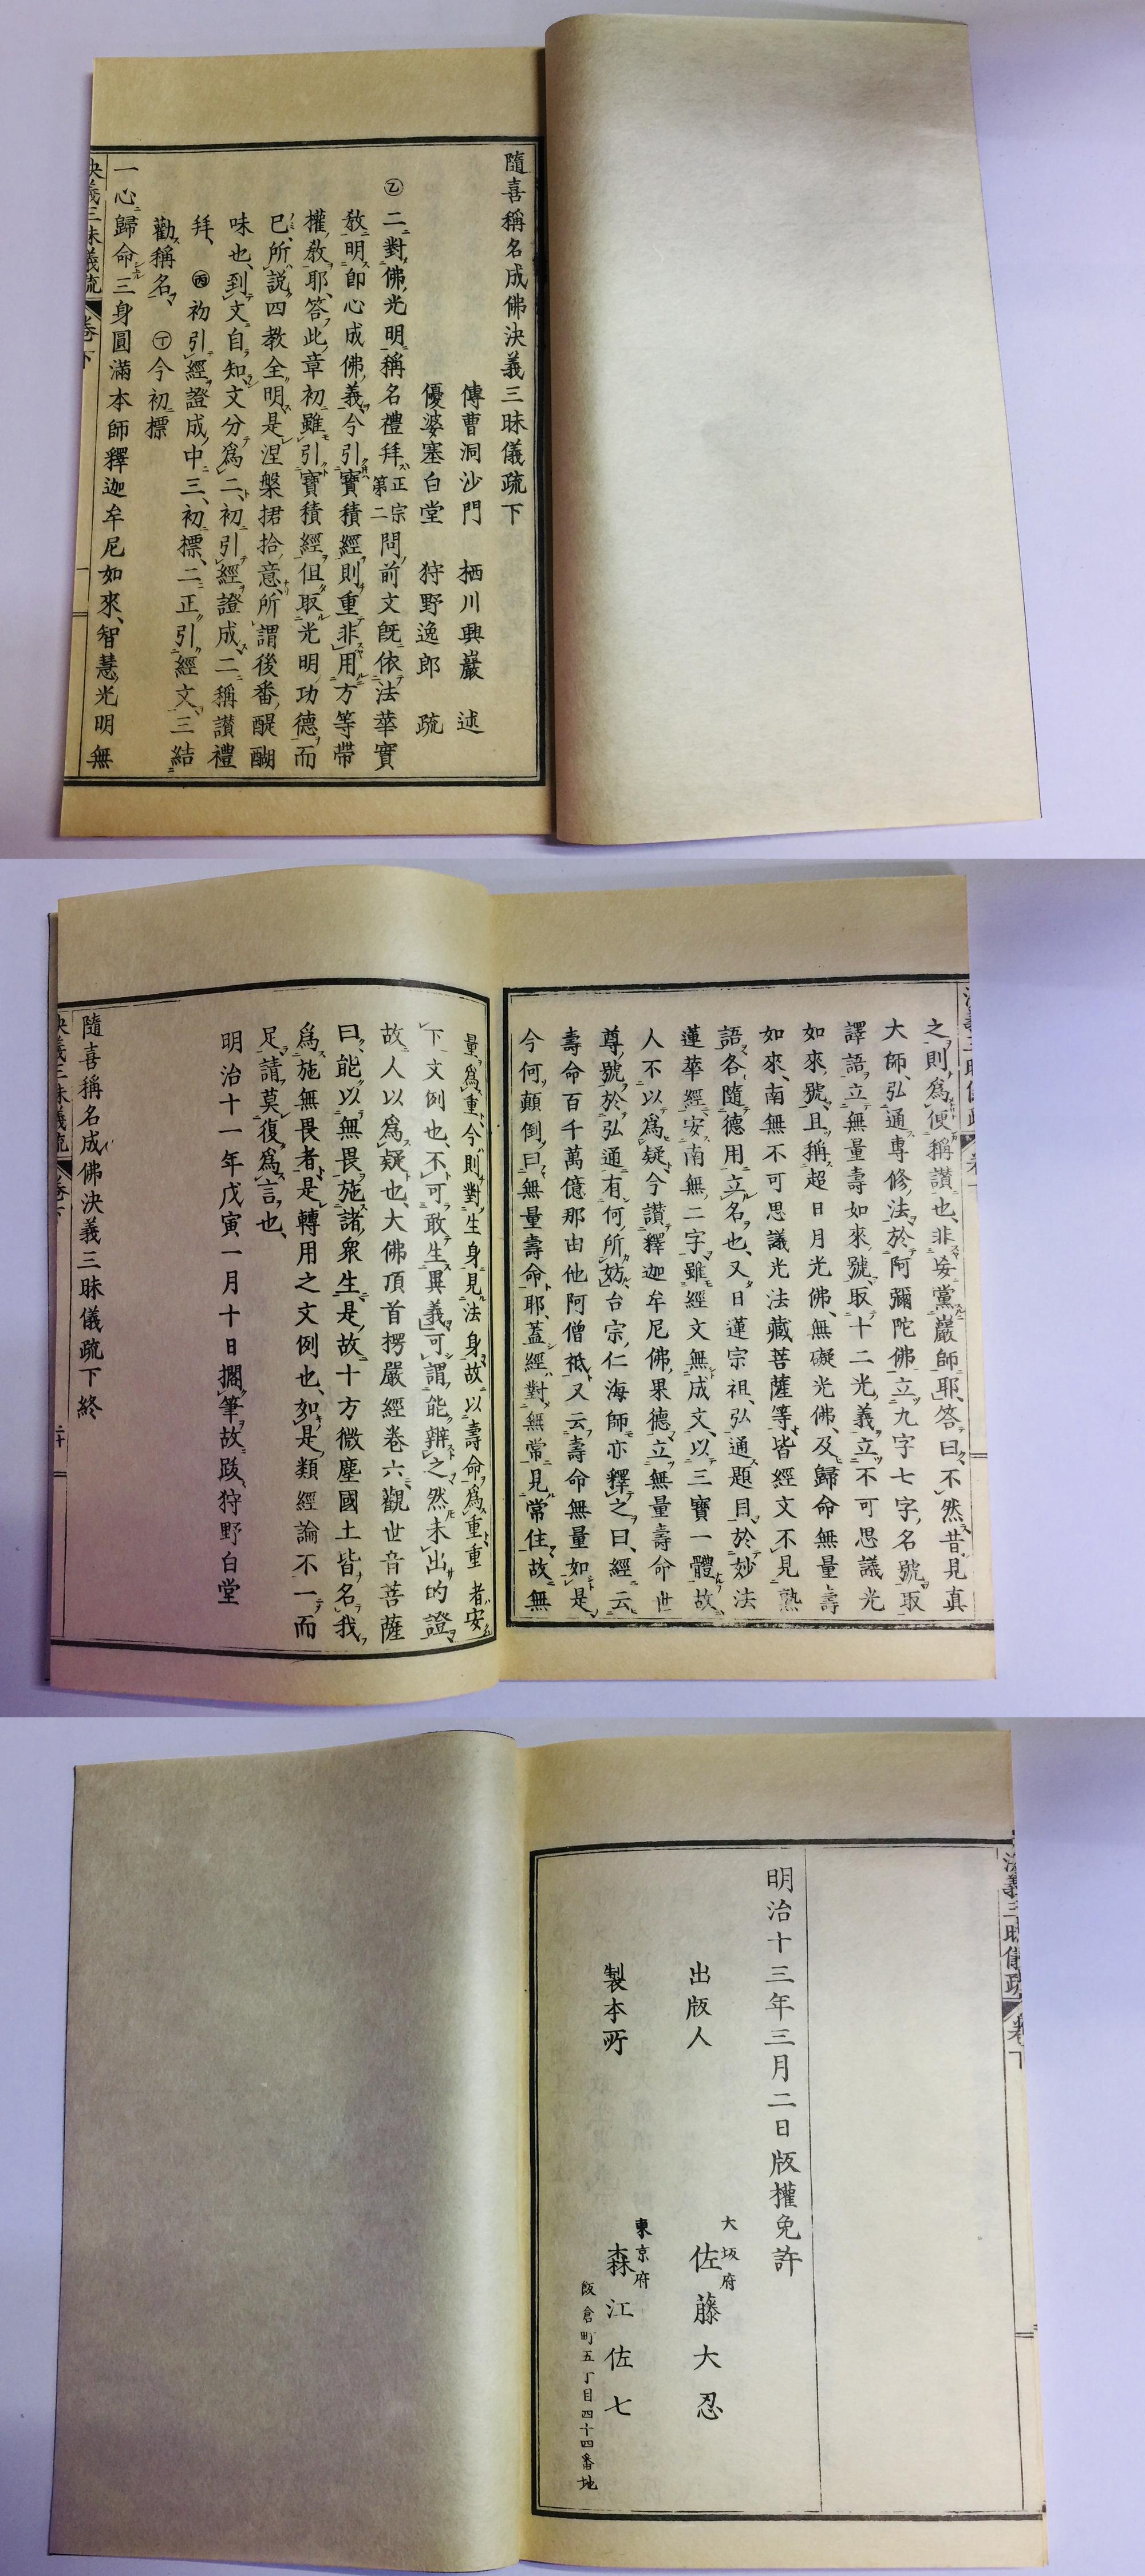 隨喜稱名成佛決義三昧儀疏下
傳曹洞沙門 栖川興巖 述
優婆塞白堂 狩野逸郎 疏
㊁二對佛光明稱名禮拜正宗第二問前文既依法華實
教明即心成佛義今引寶積經則重非用方等帶
權教耶答此章初雖引寶積經但取光明功德而
已所說四教全明是涅槃捃拾意所謂後番醍醐
味也到文自知文分爲二初引經證成二稱讚禮
拜、㊂初引經證成中三、初標、二正引經文、三結
勸稱名 今初標
一心歸命三身圓滿本師釋迦牟尼如來、智慧光明無
決義三昧儀疏 卷下
之則爲便稱讚也、非妄黨巖師耶、答曰不然昔見真
大師、弘通專修法於阿彌陀佛立九字七字名號取
譯語立無量壽如來號取十二光義立不可思議光
如來號且稱超日月光佛、無礙光佛、及歸命無量壽
如來、南無不可思議光法藏菩薩等皆經文不見熟
語各隨德用立名也、又日蓮宗祖弘通題目於妙法
蓮華經安南無二字雖經文無成文以三寶一體故
人不以爲疑今讚釋迦牟尼佛果德立無量壽命世
尊號於弘通有何所妨台宗仁海師亦釋之曰經云
壽命百千萬億那由他阿僧祗又云壽命無量如是
今何顛倒曰無量壽命耶、蓋經對無常見常住故無
量爲重今則對生身見法身故以壽命爲重重者安
下文例也、不可敢生異義可謂能辨之然未出的證
故人以爲疑也、大佛頂首楞嚴經卷六觀世音菩薩
曰能以無畏施諸衆生是故十方微塵國土皆名我
爲施無畏者是轉用之文例也、如是類經論不一而
足請莫復爲言也、
明治十一年戊寅一月十日擱筆故跋狩野白堂
隨喜稱名成佛決義三昧儀疏下終
決義三昧儀疏 卷下
決義三昧儀疏 卷下
明治十三年三月二日版權免許
出版人 大坂府 佐藤大忍
製本所 東京府 森江佐七
飯倉町五丁目四十四番地